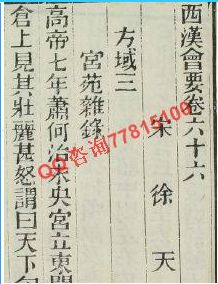 西漢會要卷六十六
宋 徐 天
方域三
宮苑雜錄
高帝七年蕭何治未央宮立東闕
倉上見其壯麗甚怒謂曰天下匈
QQ咨询77815100